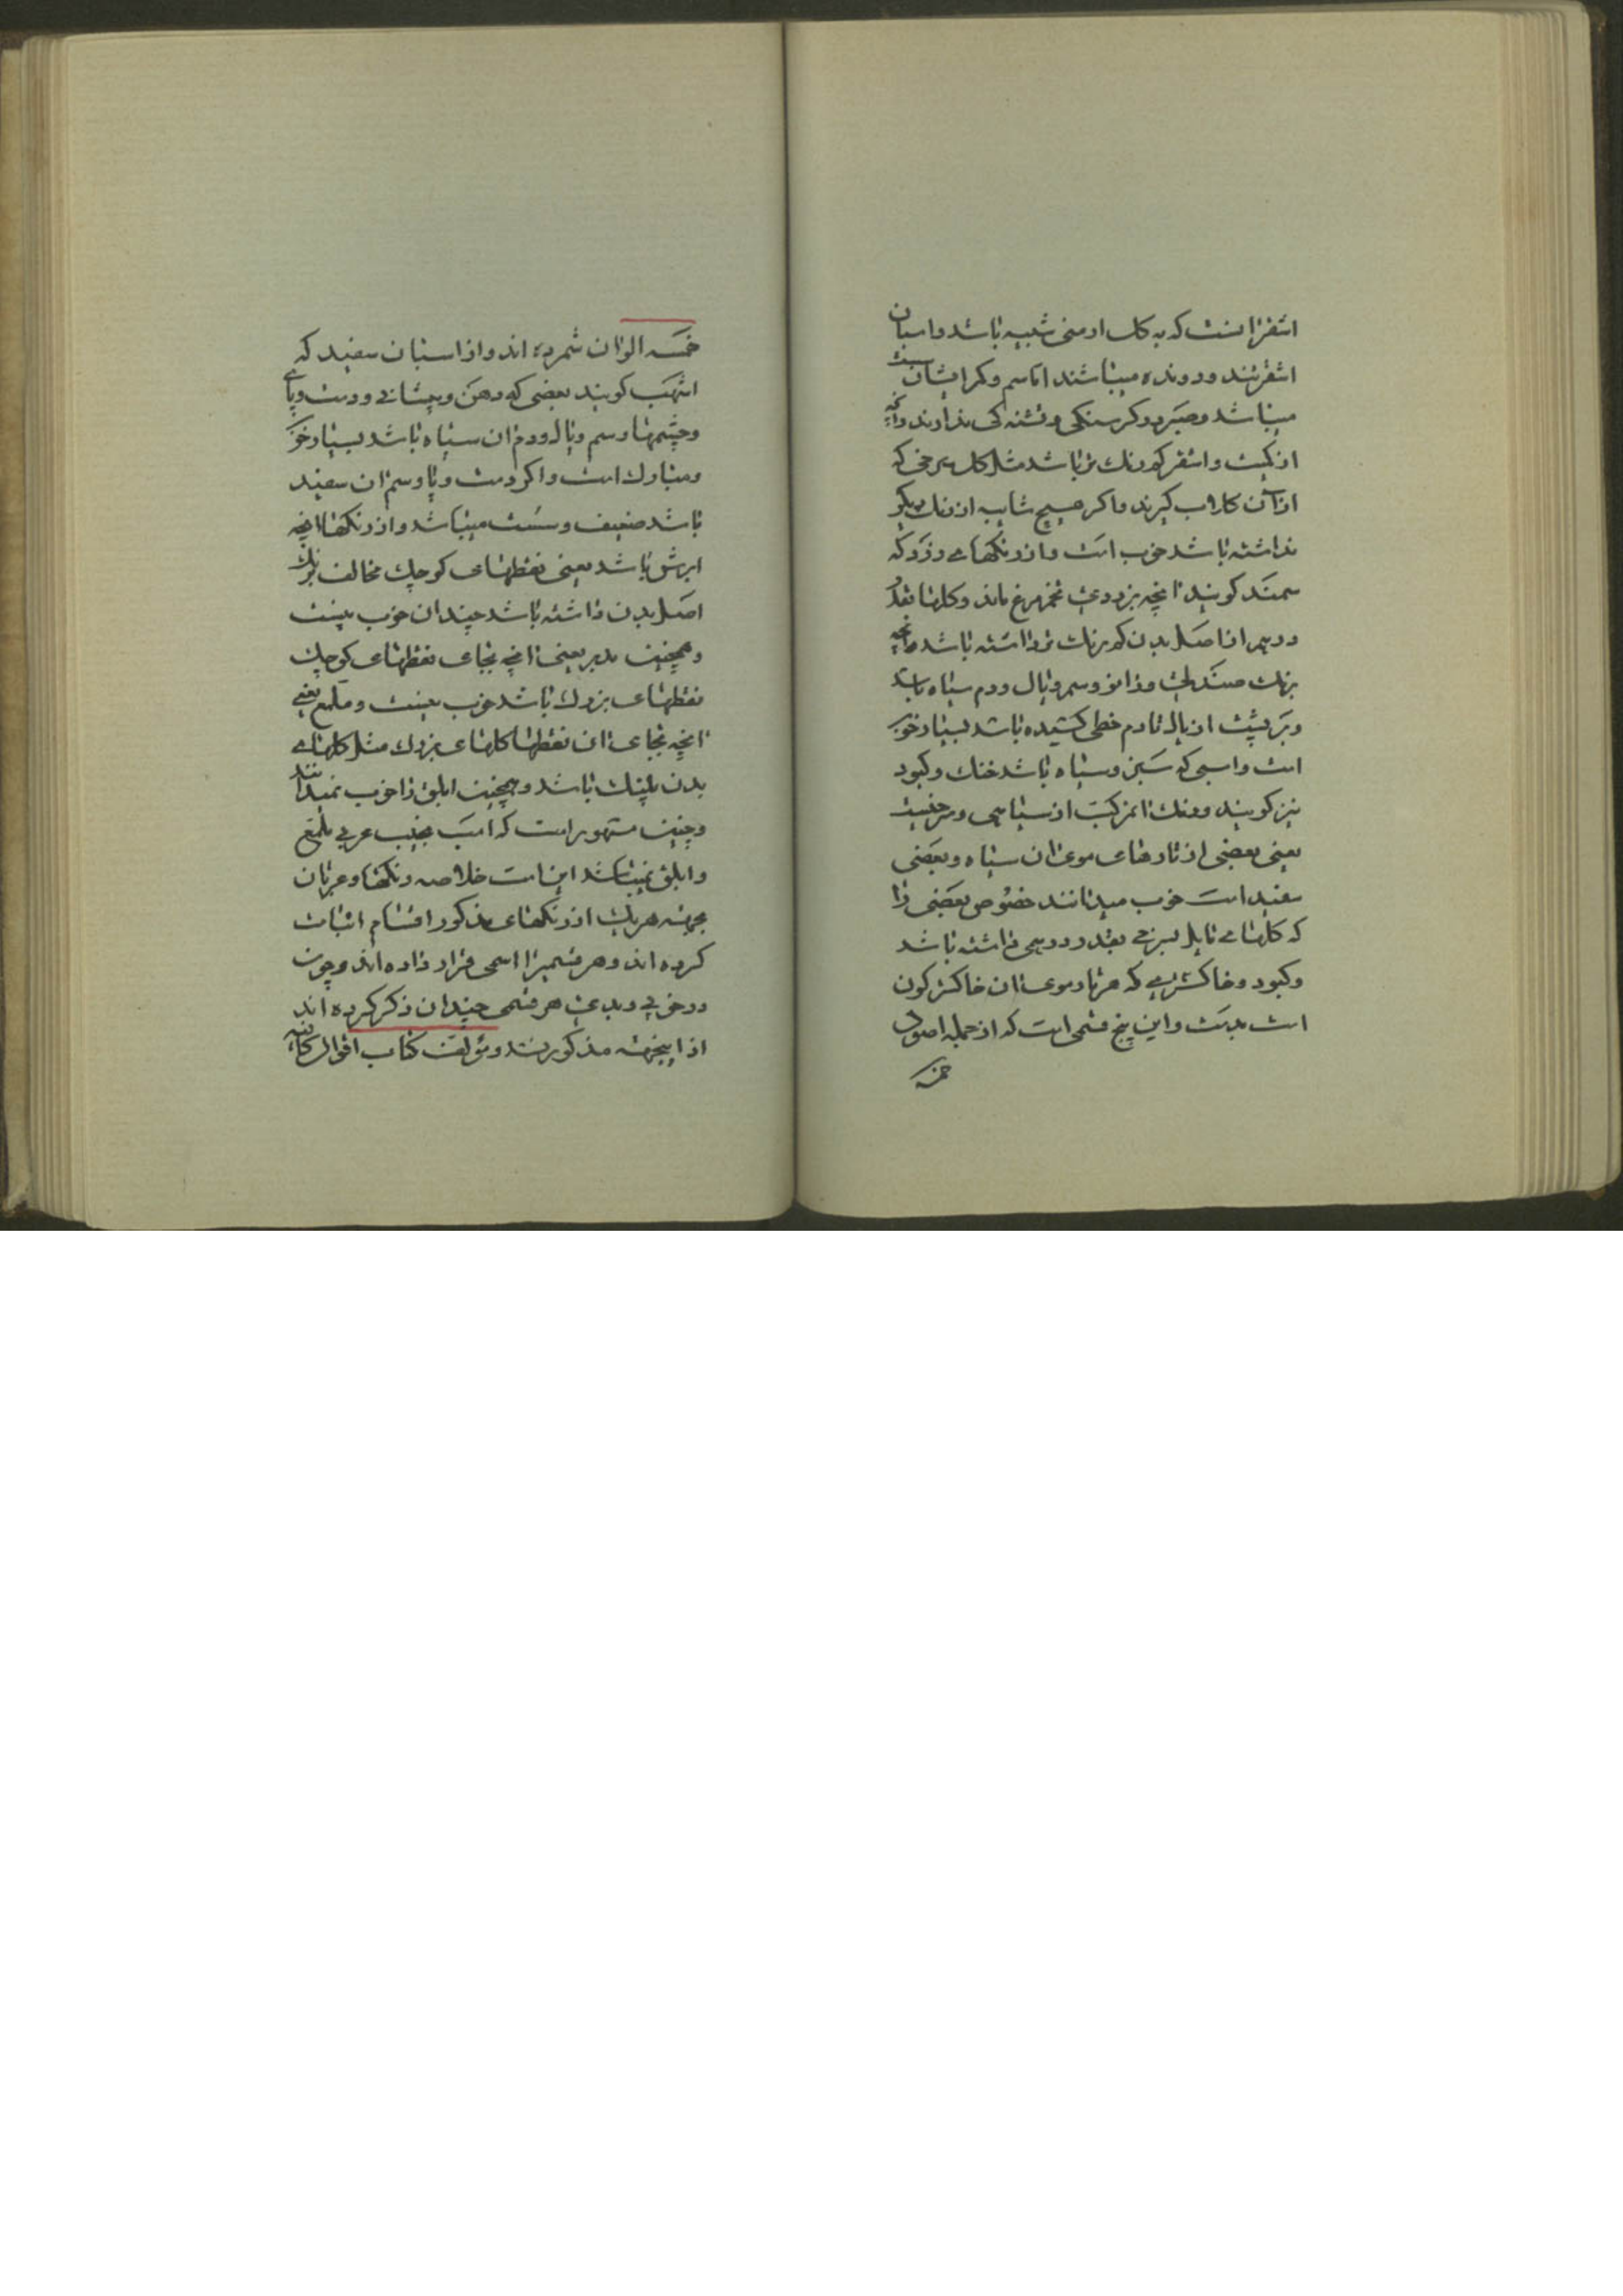 اشقر انست که به کل ارمنی شبیه باشد و اسبان
اشقر تند و دونده میباشند اما سم و کمر ایشان سست
میباشد و صبر در کرسنکی و تشنه کی ندارند و انچه
از کمیت و اشقر کم رنک تر باشد مثل کل سرخی که
از ان کلاب کیرند و اکر هیچ شایبه از رنک دیکر
نداشته باشد خوب است و از رنکهای زرد که
سمند کویند انچه بزردی تخم مرغ ماند و کلها بقدر
درهم از اصل بدن کم رنک تر داشته باشد و انچه
برنک صندلی و زانو و سم و یال و دم سیاه باشد
و بر پشت از یال تا دم خطی کشیده باشد بسیار خوب
است و اسبی که سبز و سیاه باشد خنک و کبود
نیز کویند و رنک ان مرکب از سیاهی و سرخیست
یعنی بعضی از تارهای موی ان سیاه و بعضی
سفید است خوب میدانند خصوص بعضی را
که کلهای مایل بسرخی بقدر درهمی داشته باشد
و کبود و خاکستری که هر تار موی ان خاکستر کون
است بد است و این پنج قسمی است که از جمله اصول
خمسه
خمسه الوان شمرده اند و از اسبان سفید که
اشهب کویند بعضی که دهن و پیشانی و دست و پای
و چشمها و سم و یال و دم ان سیاه باشد بسیار خوب
و مبارک است و اکر دست و پا و سم ان سفید
باشد ضعیف و سست میباشد و از رنکها انچه
ابرش باشد یعنی نقطهای کوچک مخالف برنک
اصل بدن داشته باشد چندان خوب نیست
و همچنین مدبر یعنی انچه بجای نقطهای کوچک
نقطهای بزرک باشد خوب نیست و ملمع یعنی
انچه بجای ان نقطها کلهای بزرک مثل کلهای
بدن پلنک باشد و همچنین ابلق را خوب نمیدانند
و چنین مشهور است که اسب نجیب عربی ملمع
و ابلق نمیباشد این است خلاصه رنکها و عربان
بجهته هر یک از رنکهای مذکور اقسام اثبات
کرده اند و هر قسمیرا اسمی قرار داده اند و چون
در خوبی و بدی هر قسمی چندان ذکر کرده اند
از اینجهته مذکور نشد و مؤلف کتاب اقوال کافیه